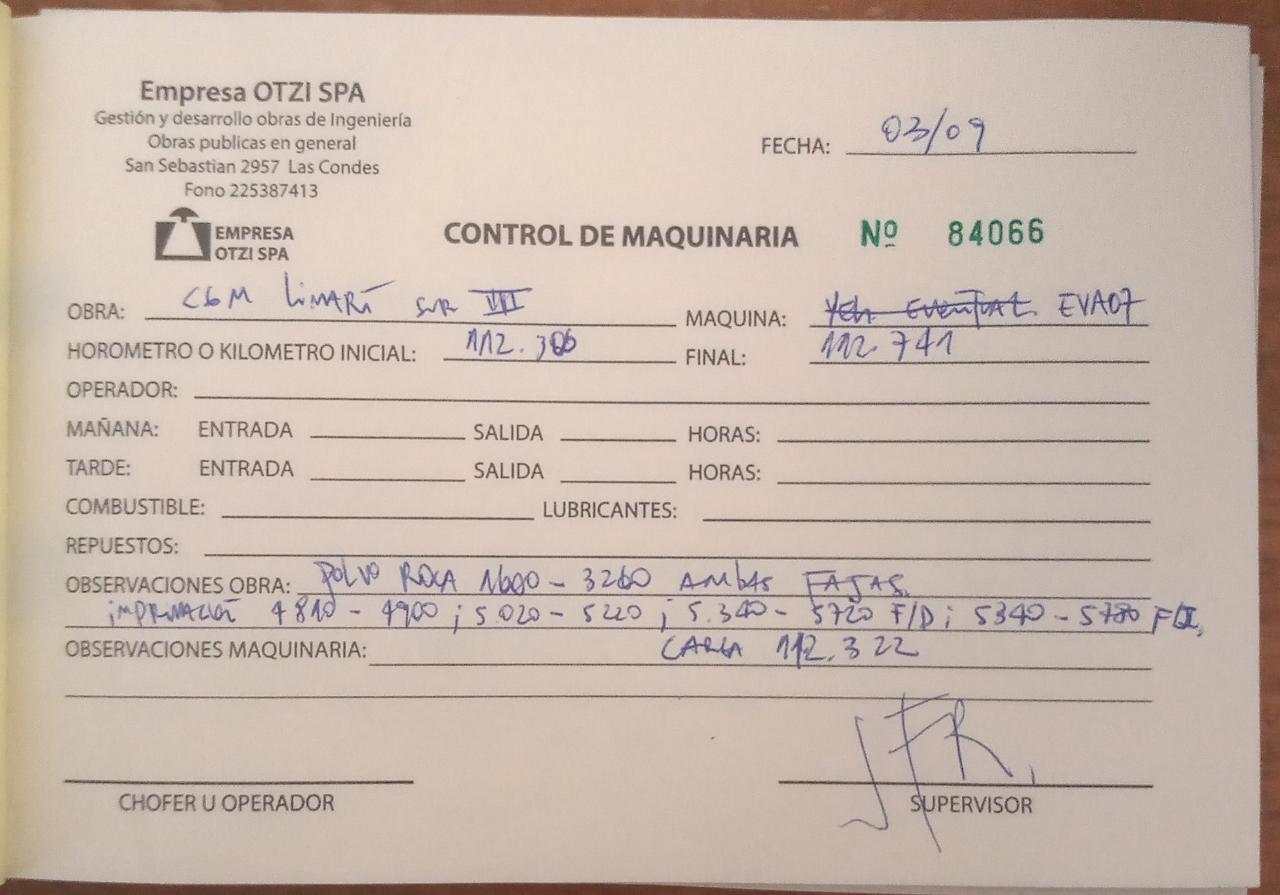 Empresa OTZI SPA
Gestión y desarrollo obras de Ingeniería
Obras publicas en general
San Sebastian 2957 Las Condes
Fono 225387413
FECHA: 03/09
EMPRESA
OTZI SPA
CONTROL DE MAQUINARIA Nº 84066
OBRA: CGM LIMARÍ SUR III MAQUINA: EVA07
HOROMETRO O KILOMETRO INICIAL: 112.306 FINAL: 112.741
OPERADOR:
MAÑANA: ENTRADA SALIDA HORAS:
TARDE: ENTRADA SALIDA HORAS:
COMBUSTIBLE: LUBRICANTES:
REPUESTOS:
OBSERVACIONES OBRA: POLVO ROCA 1600 - 3260 AMBAS FAJAS.
IMPRIMACIÓN 4810 - 4900 ; 5.020 - 5220 ; 5.340 - 5720 F/D ; 5340 - 5780
OBSERVACIONES MAQUINARIA: CARGA 112.322
JFR.
CHOFER U OPERADOR SUPERVISOR